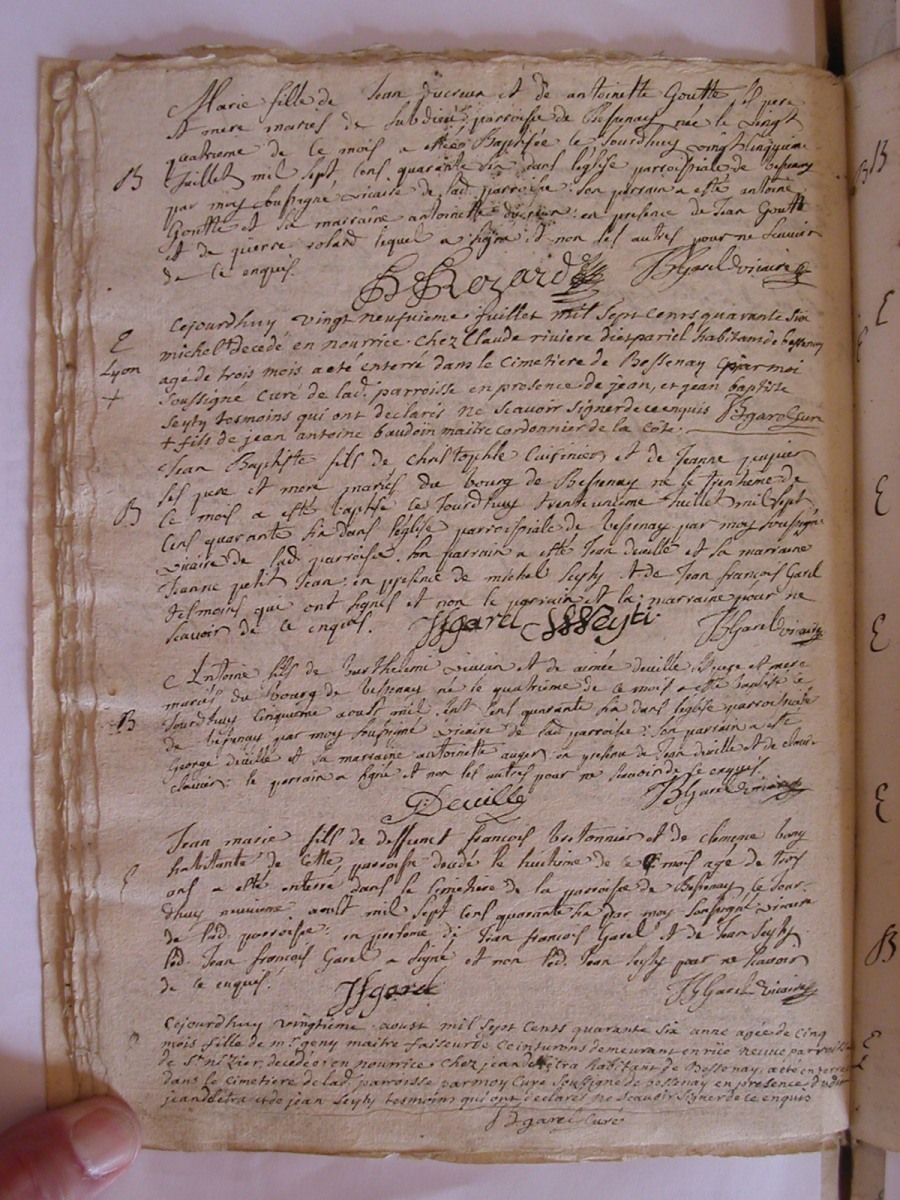 Marie fille de Jean Ducreux et de antoinette Goutte ses pere
et mere mariés de parroisse de Bessenay née le vingt
quatrieme de ce mois a esté Baptisée ce Jourdhuy vingt cinquieme
B
Juillet mil sept cens quarante six dans leglise parroissiale de bessenay
par moy soussigné vicaire de lad. parroisse: son parrain a esté antoine
Goutte et sa marraine antoinette ducreux: en presence de Jean Goutte
et de pierre lequel a signé et non les autres pour ne scavoir
de ce enquis.
JBGarel vicaire
cejourdhuy vingt neufvieme juillet mil sept cents quarante six
E
Lyon
+
michel + decedé en nourrice chez Claude riviere habitant de bessenay
agé de trois mois a eté enterré dans le cimetiere de Bessenay par moi
soussigné curé de lad. parroisse en presence de jean, et jean baptiste
Seyty tesmoins qui ont declarés ne scavoir signer de ce enquis JBgarel cure
+ fils de jean antoine baudoin maitre cordonnier de la cote.
Jean Baptiste fils de Christophle Cuisinier et de Jeanne
ses pere et mere mariés du bourg de Bessenay né le trentieme de
B
ce mois a esté baptisé ce Jourdhuy trente unieme Juillet mil sept
cens quarante six dans leglise parroissiale de bessenay par moy soussigné
vicaire de lad. parroisse. son parrain a esté Jean deville et sa marraine
Jeanne petit Jean: en presence de michel Seyty et de Jean francois Garel
tesmoins qui ont signés et non le parrain et la marraine pour ne
scavoir de ce enquis. JfGarel Seyti JBGarel vicaire
Antoine fils de Barthelemi vivian et de aimée deville ses pere et mere
mariés du bourg de bessenay né le quatrieme de ce mois a esté baptisé ce
B
Jourdhuy cinquieme aoust mil sept cens quarante six dans leglise parroissiale
de bessenay par moy soussigné vicaire de lad parroisse: son parrain a esté
George deville et sa marraine antoinette auger: en presence de Jean deville et de
: le parrain a signé et non les autres pour ne scavoir de ce enquis.
GDeville JBGarel vicaire
Jean marie fils de deffunct francois bretonnier et de clemence
habitante de cette parroisse decedé le huitieme de ce mois agé de trois
E
ans a esté enterré dans le cimetiere de la parroisse de Bessenay ce Jour-
dhuy neuvieme aoust mil sept cens quarante six par moy soussigné vicaire
de lad. parroisse: en presence de Jean francois Garel et de Jean Seyty
led. Jean francois Garel a signé et non led. Jean Seyty pour ne scavoir
de ce enquis. Jfgarel JBGarel vicaire
cejourdhuy vingtieme aoust mil sept cents quarante six anne agée de cinq
mois fille de mr geny maitre faiseur de ceinturons demeurant en rüe neuve parroisse
de St nizier, decedée en nourrice chez jean detra habitant de Bessenay, a eté enterrée
dans le cimetiere de lad. parroisse par moy Curé soussigné de bessenay en presence dudit
jean detra et de jean Seyty tesmoins qui ont declarés ne scavoir signer de ce enquis
JBgarel Curé